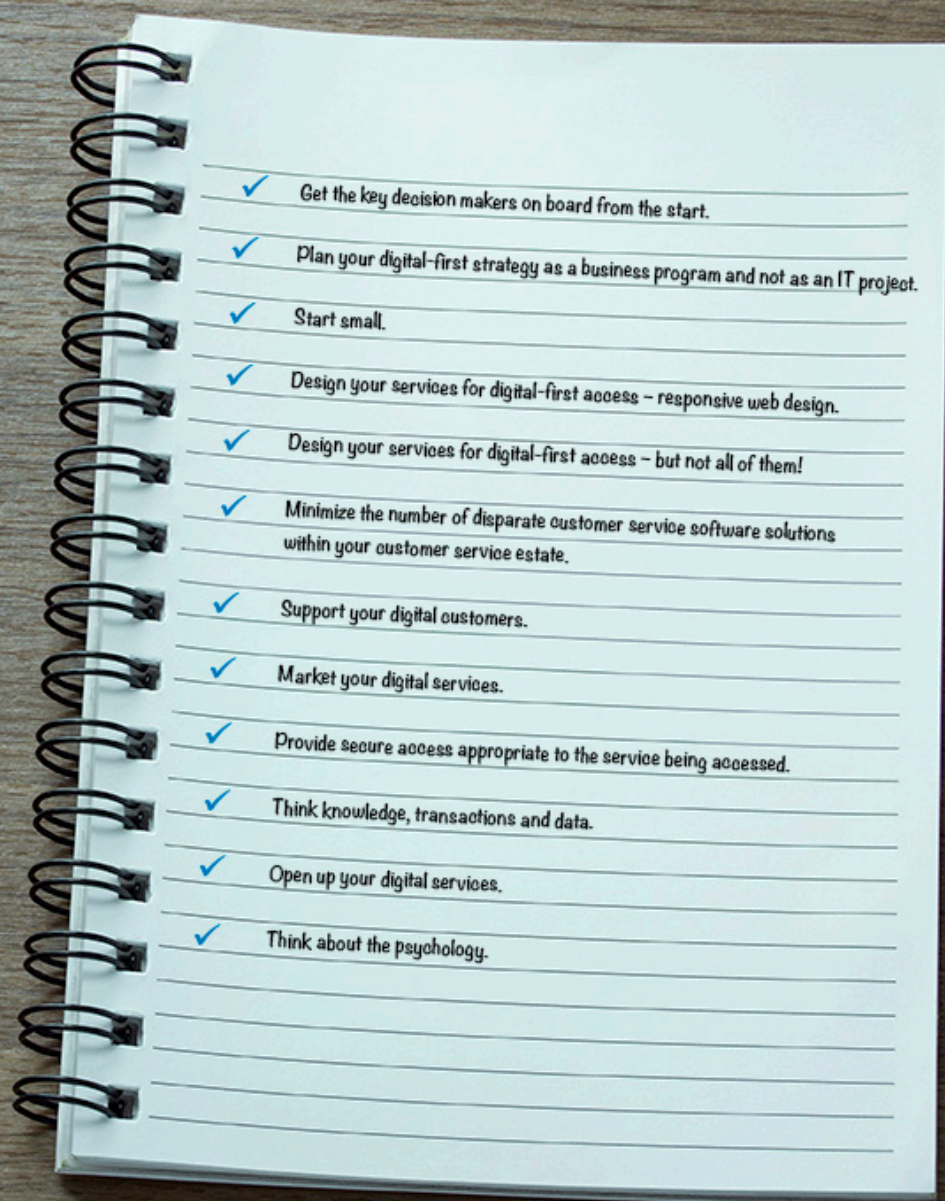 Get the key decision makers on board from the start.
Plan your digital-first strategy as a business program and not as an IT project.
Start small.
Design your services for digital-first access – responsive web design.
Design your services for digital-first access – but not all of them!
Minimize the number of disparate customer service software solutions
within your customer service estate.
Support your digital customers.
Market your digital services.
Provide secure access appropriate to the service being accessed.
Think knowledge, transactions and data.
Open up your digital services.
Think about the psychology.